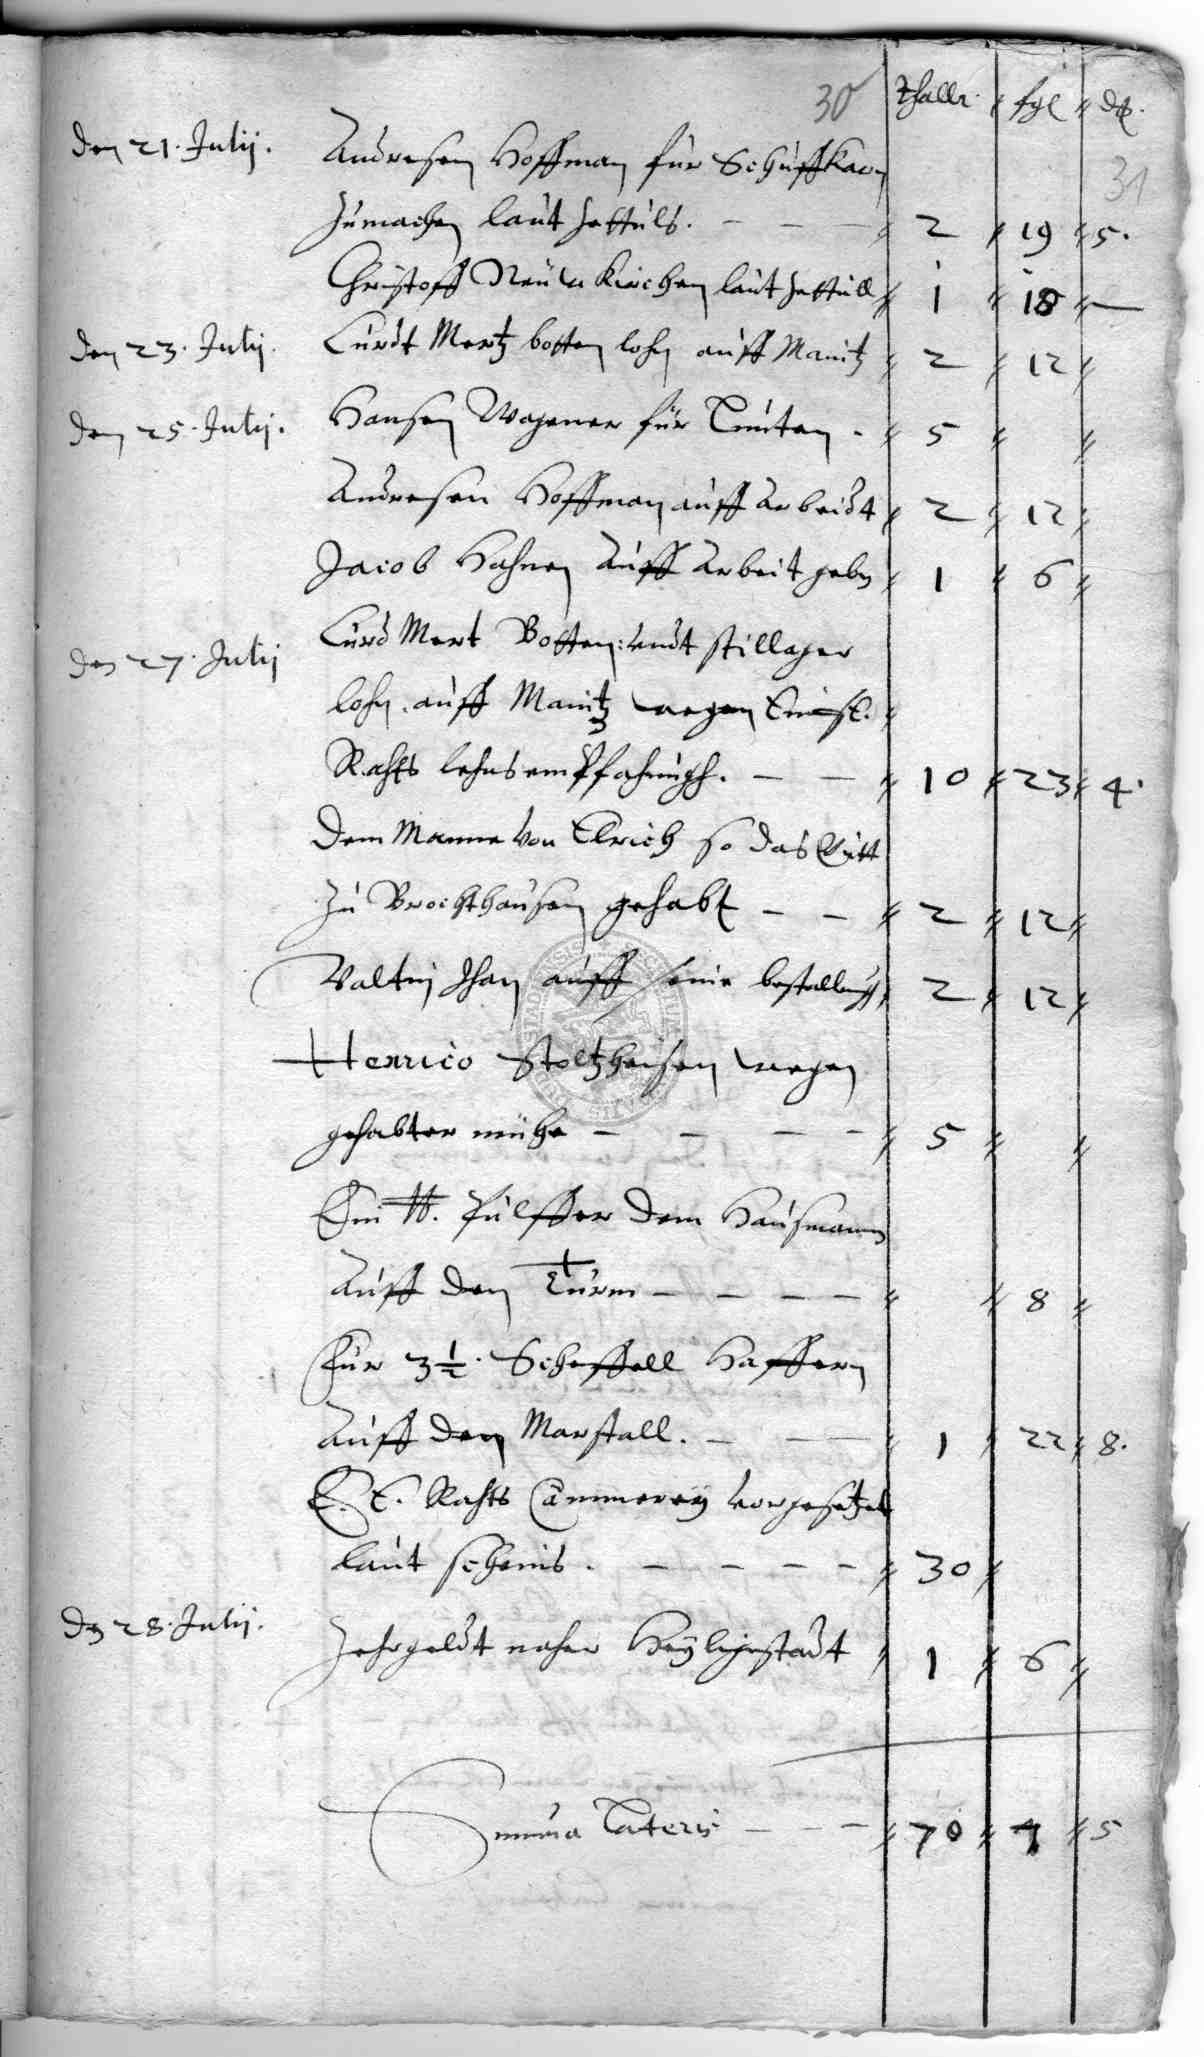 30 thallr. fgl d.
31
den 21. Julij. Andresen Hoffman für Schuffkarn
zumachen laut zettuls. — — — 2 19 5.
Christoff Neün Kirchen laut zettull 1 18 —
den 23. Julij. Curdt Mertz botten lohn auff Mantz 2 12
den 25. Julij. Hansen Wagener für Lunten. 5
Andresen Hoffman auff arbeidt 2 12
Jacob Hahnen auff arbeit geben 1 6
den 27. Julij Curd Mert Botten: undt stillager
lohn auff Maintz wegen
Rahts lehnsempfahungh. — — 10 23 4.
Dem Manne von Elrich so das
zu Brochthausen gehabt — — 2 12
Valtin Jhan auff seine bestallung 2 12
Henrico Stoltzheisen wegen
gehabter mühe — — — — 5
Ein tt. Pulffer dem Hausmann
auff den Turm — — — — 8
Für 3 1/2. Scheffell Haffern
auff den Marstall. — — 1 22 8.
E. E. Rahts Cämmerey vorgesetzet
laut scheins. — — — — 30
den 28. Julij. Zehrgeldt naher Heyligenstadt 1 6
Summa Lateris — — — 70 7 5